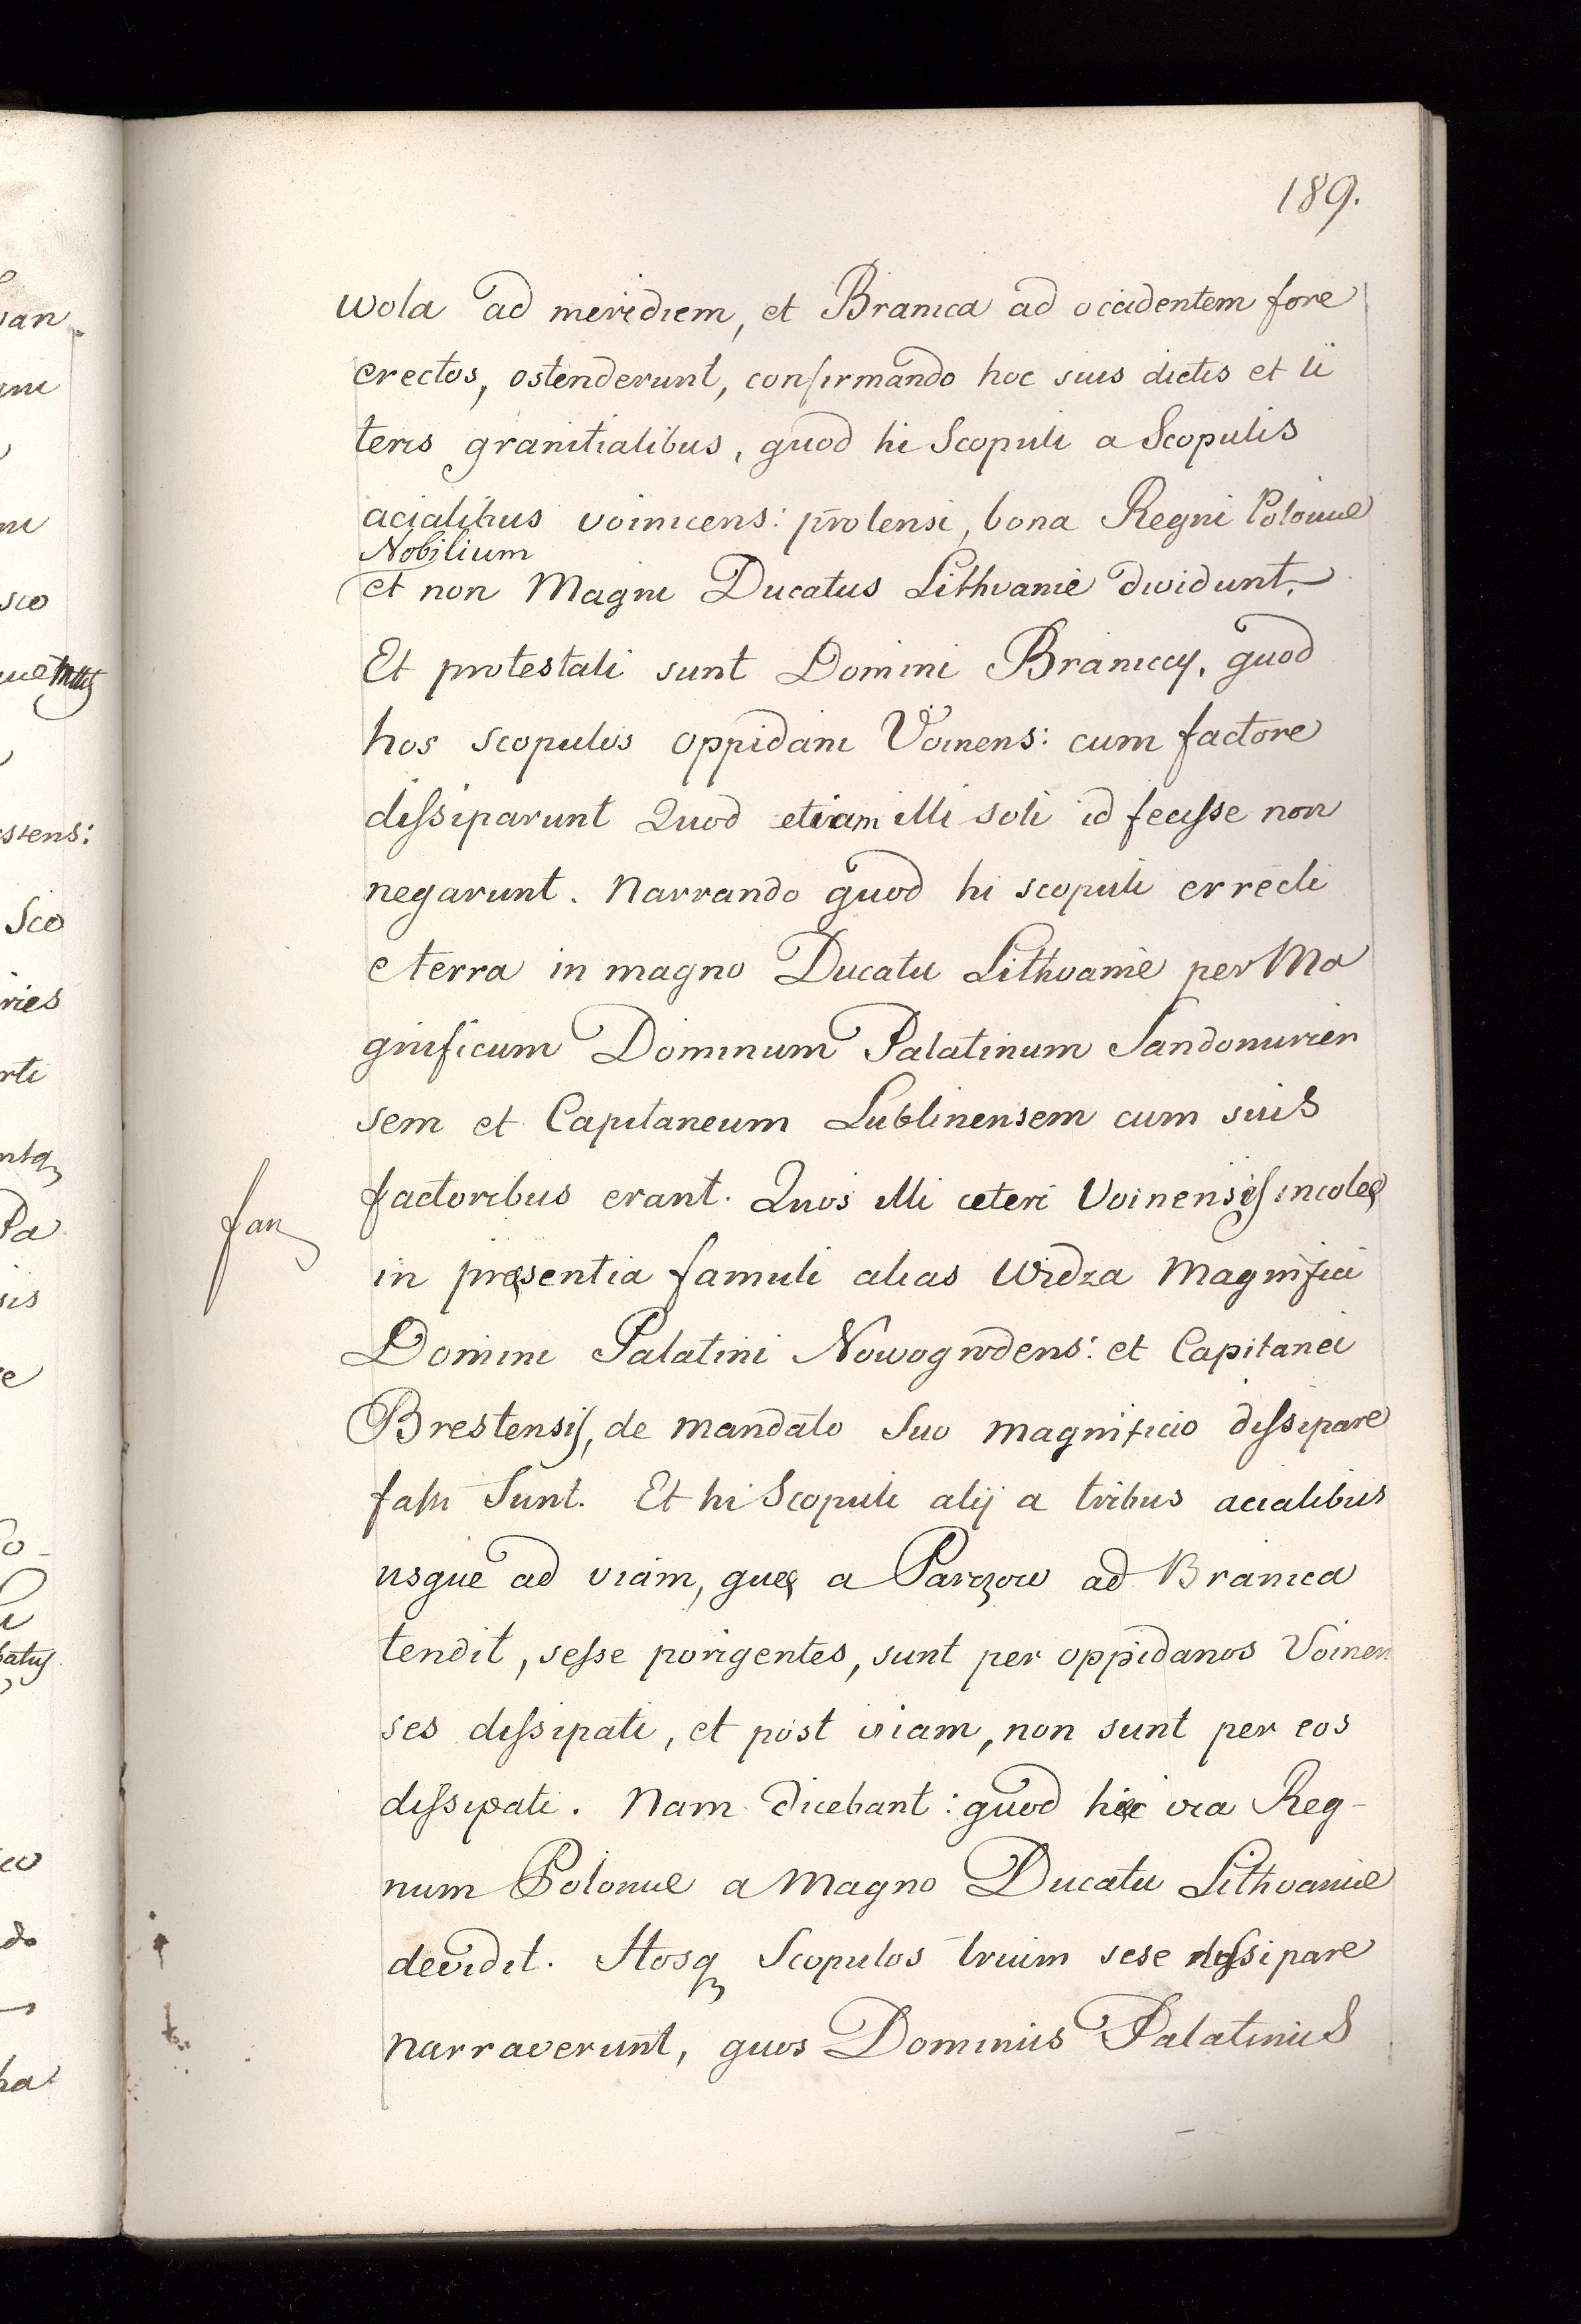 189.
wola ad meridiem, et Branica ad occidentem fore
erectos, ostenderunt, confirmando hoc suis dictis et li
teris granitialibus, quod hi Scopuli a Scopulis
acialibus voinicens: protensi, bona Regni Poloniæ
Nobilium
et non Magni Ducatus Lithvanie dividunt.
Et protestati sunt Domini Braniccy, quod
hos scopulos oppidani Voinens: cum factore
dissiparunt Quod etiam illi soli id fecisse non
negarunt. Narrando quod hi scopuli errecti
e terra in magno Ducatu Lithvanie per Ma
gnificum Dominum Palatinum Sandomirien
sem et Capitaneum Lublinensem cum suis
factoribus erant. Quos illi ceteri Voinensis incolę
in pręsentia famuli alias Widza Magnifici
Domini Palatini Nowogrodens: et Capitanei
Brestensis, de mandato Suo magnificio dissipare
fassi Sunt. Et hi Scopuli alij a tribus acialibus
usque ad viam, quę a Parczow ad Branica
tendit, sesse porigentes, sunt per oppidanos Voinen
ses dissipati, et post viam, non sunt per eos
dissipati. Nam dicebant: quod hęc via Reg-
num Poloniæ a Magno Ducatu Lithvaniæ
devidit. Hosq Scopulos trium sese dissipare
narraverunt, quos Dominus Palatinus